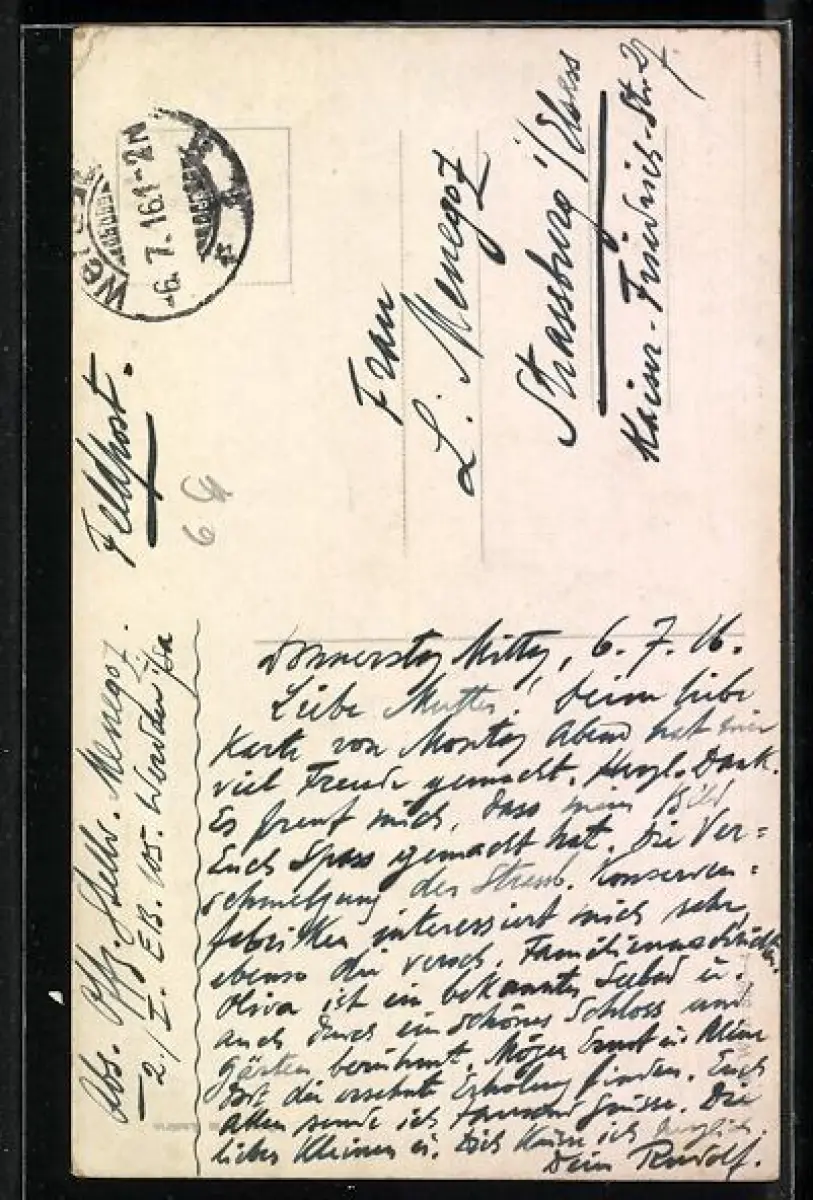 -6.7.16.1-2N
Feldpost.
Frau
L. Menegoz
Strassburg i/Elsass
Kaiser-Friedrich-Str. 27
Abs. Offz. Stellv. Menegoz.
2./I. E.B. 105. Werden
6
Donnerstag Mittag, 6. 7. 16.
Liebe Mutter! Deine liebe
Karte von Montag Abend hat mir
viel Freude gemacht. Herzl. Dank.
Es freut mich, dass mein Bild
Euch Spass gemacht hat. Die Ver=
schmelzung der Strassb. Konserven=
fabriken interessiert mich sehr,
ebenso die versch. Familiennachrichten.
Oliva ist ein bekanntes Seebad u.
auch durch ein schönes Schloss und
Gärten berühmt. Möge Ernst u.
dort die ersehnte Erholung finden. Euch
allen sende ich tausend Grüsse. Die
lieben Kleinen u. Dich küsse ich herzlich.
Dein Rudolf.